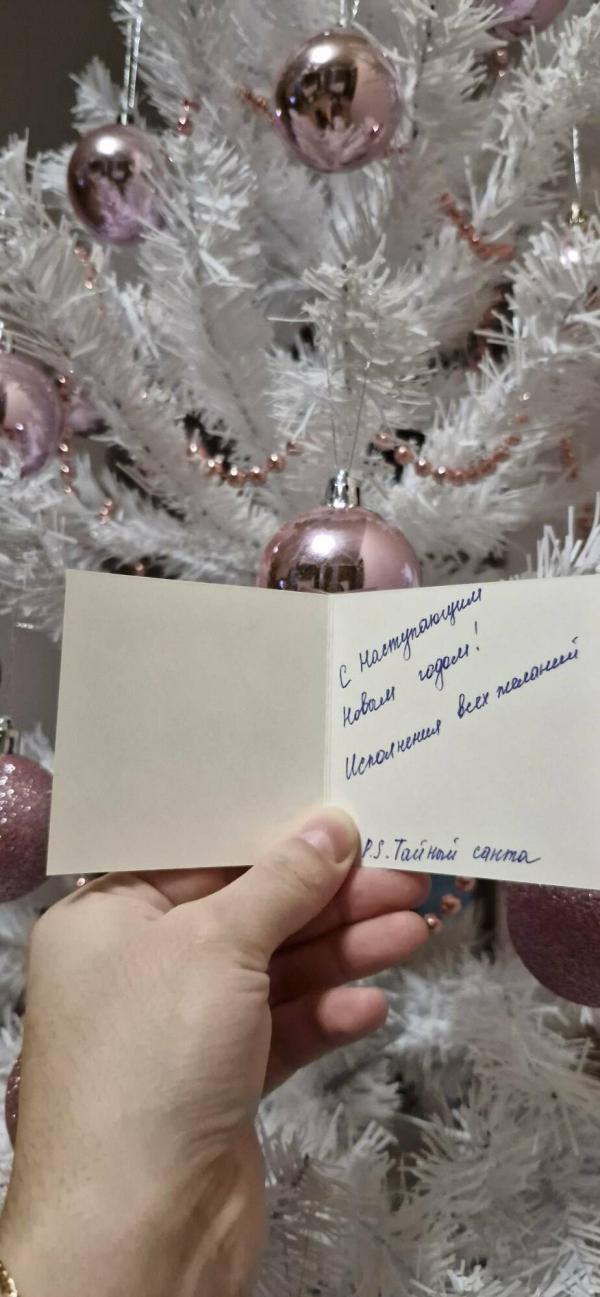 С наступающим
Новым годом!
Исполнения всех желаний
P.S. Тайный санта